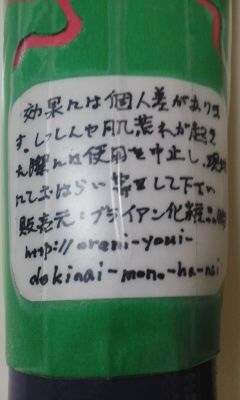 効果には個人差がありま
す。しっしんや肌荒れが起き
た際には使用を中止し、現地
にておはらい等をして下さい
販売元:ブライアン化粧品
http://oreni-youi-
dekinai-mono-ha-nai